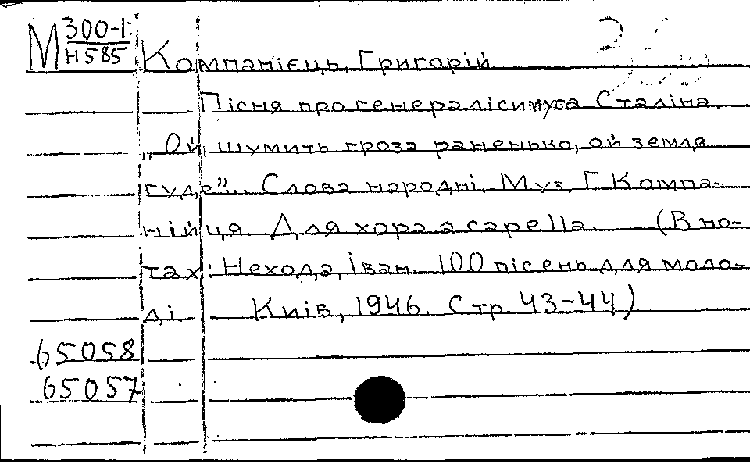 М 300-1
Н585
Компанієць, Григорій
Пісня про генералісимуса Сталіна.
„Ой, шумить гроза раненько, ой земля
гуде". Слова народні. Муз. Г. Компа-
нійця Для хора a capella. (В но-
тах: Нехода, Іван. 100 пісень для моло-
ді Київ, 1946. Стр. 43-44)
65058
65057